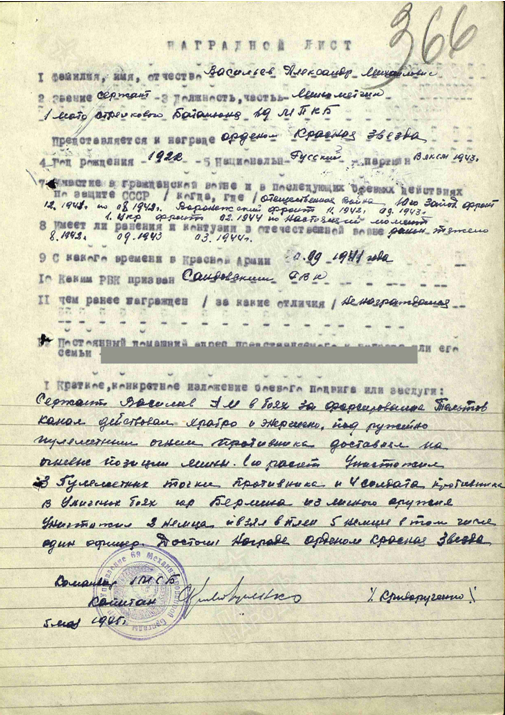 366
НАГРАДНОЙ ЛИСТ
1 Фамилия, имя, отчество Васильев Александр Михайлович
2 Звание Сержант - 3 Должность, часть Минометчик
1 мото стрелкового Батальона 29 МПКБ
Представляется к награде орденом Красная Звезда
4 Год рождения 1922 - 5 Националь- Русский, партия ВЛКСМ 1943г.
7 Участие в гражданской войне и в последующих боевых действиях
по защите СССР / когда, где / отечественная война Юго Запад фронт
12.1942 по 08.1942. Воронежский фронт 11.1942 09.1943.
1. Укр фронт 02.1944 по настоящий момент
8 Имеет ли ранения и контузии в отечественной войне ранен тяжело
8.1942. 09.1943 03.1944г.
9 С какого времени в Красной Армии 09 1941 года
10 Каким РВК призван РВК
11 чем ранее награжден / за какие отличия / не награждался
Постоянный домашний адрес представляемого к награде или его
семьи
1 Краткое, конкретное изложение боевого подвига или заслуги:
Сержант Васильев АМ в боях за форсирование Тельтов
канал действовал храбро и энергично, под ружейно
пулеметным огнем противника доставлял на
огневые позиции мины. Его расчет уничтожил
3 Пулеметных точки противника и 4 солдата противника
В Уличных боях гор Берлина из личного оружия
уничтожил 2 немца и взял в плен 5 немцев в том числе
один офицер. Достоин Награде орденом Красная Звезда
Командир 1 МСБ
капитан / Криворученко /
5 мая 1945г.